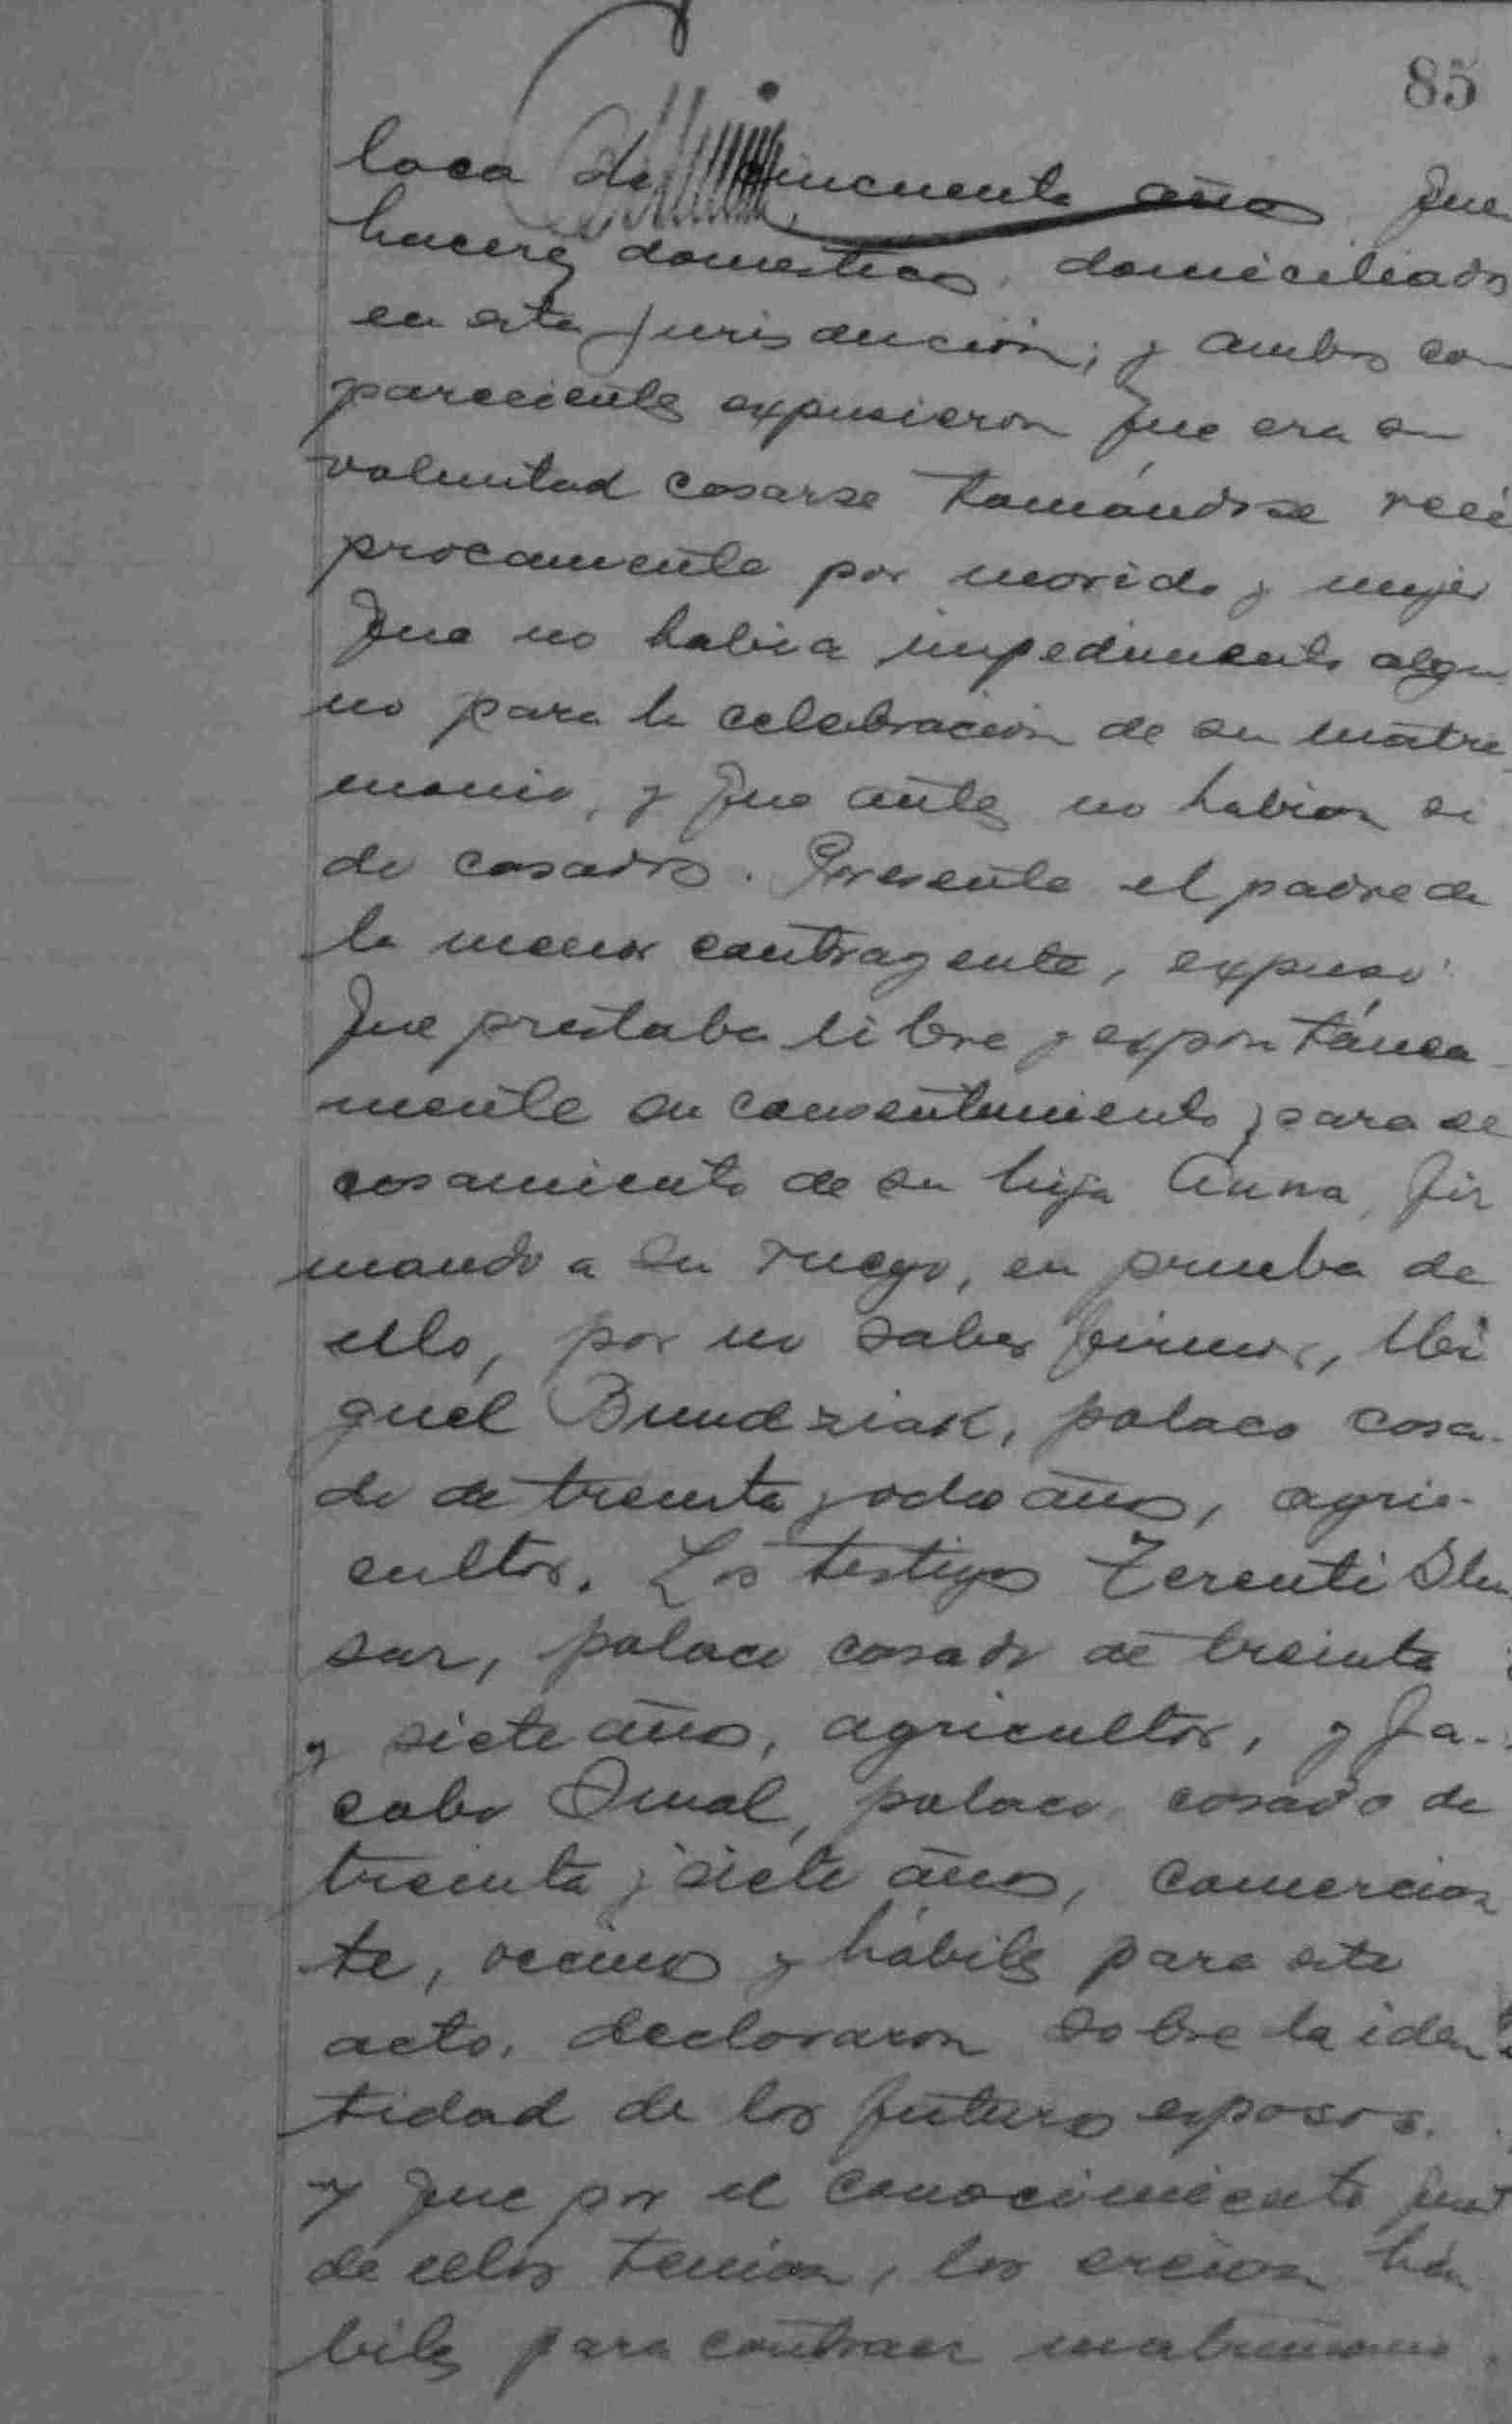 85
laca de cincuenta años que
haceres domesticos, domiciliados
en esta jurisdicción; y ambos com
parecientes expusieron que era su
voluntad casarse tomándose recí
procamente por marido y mujer
Que no habia impedimento algu
no para la celebración de su matri
monio, y que antes no habian si
do casados. Presente el padre de
la menor contragente, expuso:
Que prestaba libre y expontánea
mente su consentimiento para el
casamiento de su hija Anna, fir
mando a su ruego, en prueba de
ello, por no saber firmar, Mi
guel Bundziak, polaco casa-
do de treinta y ocho años, agri-
cultor. Los testigos Terenti Slu
sar, polaco casado de treinta
y siete años, agricultor, y Ja-
cobo Smal, polaco, casado de
treinta y siete años, comercian
te, vecinos y hábiles para este
acto, declararon sobre la iden
tidad de los futuros esposos.
y que por el conocimiento que
de ellos tenian, los creian há
biles para contraer matrimonio.